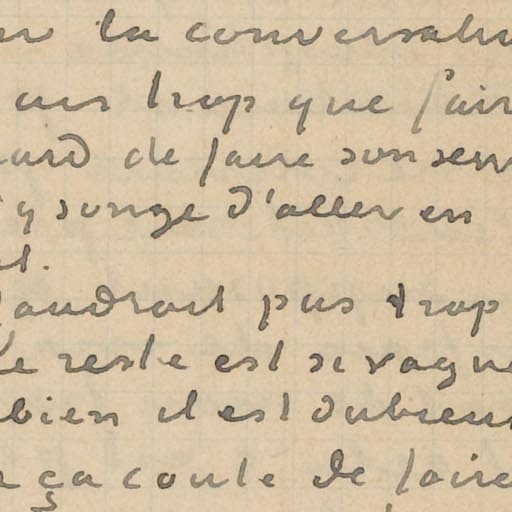 la conversation
trop que faire
de faire son serv
y songe d'aller en
faudrait pas trop
Le reste est si vague
bien il est dubieux
ça coute de faire